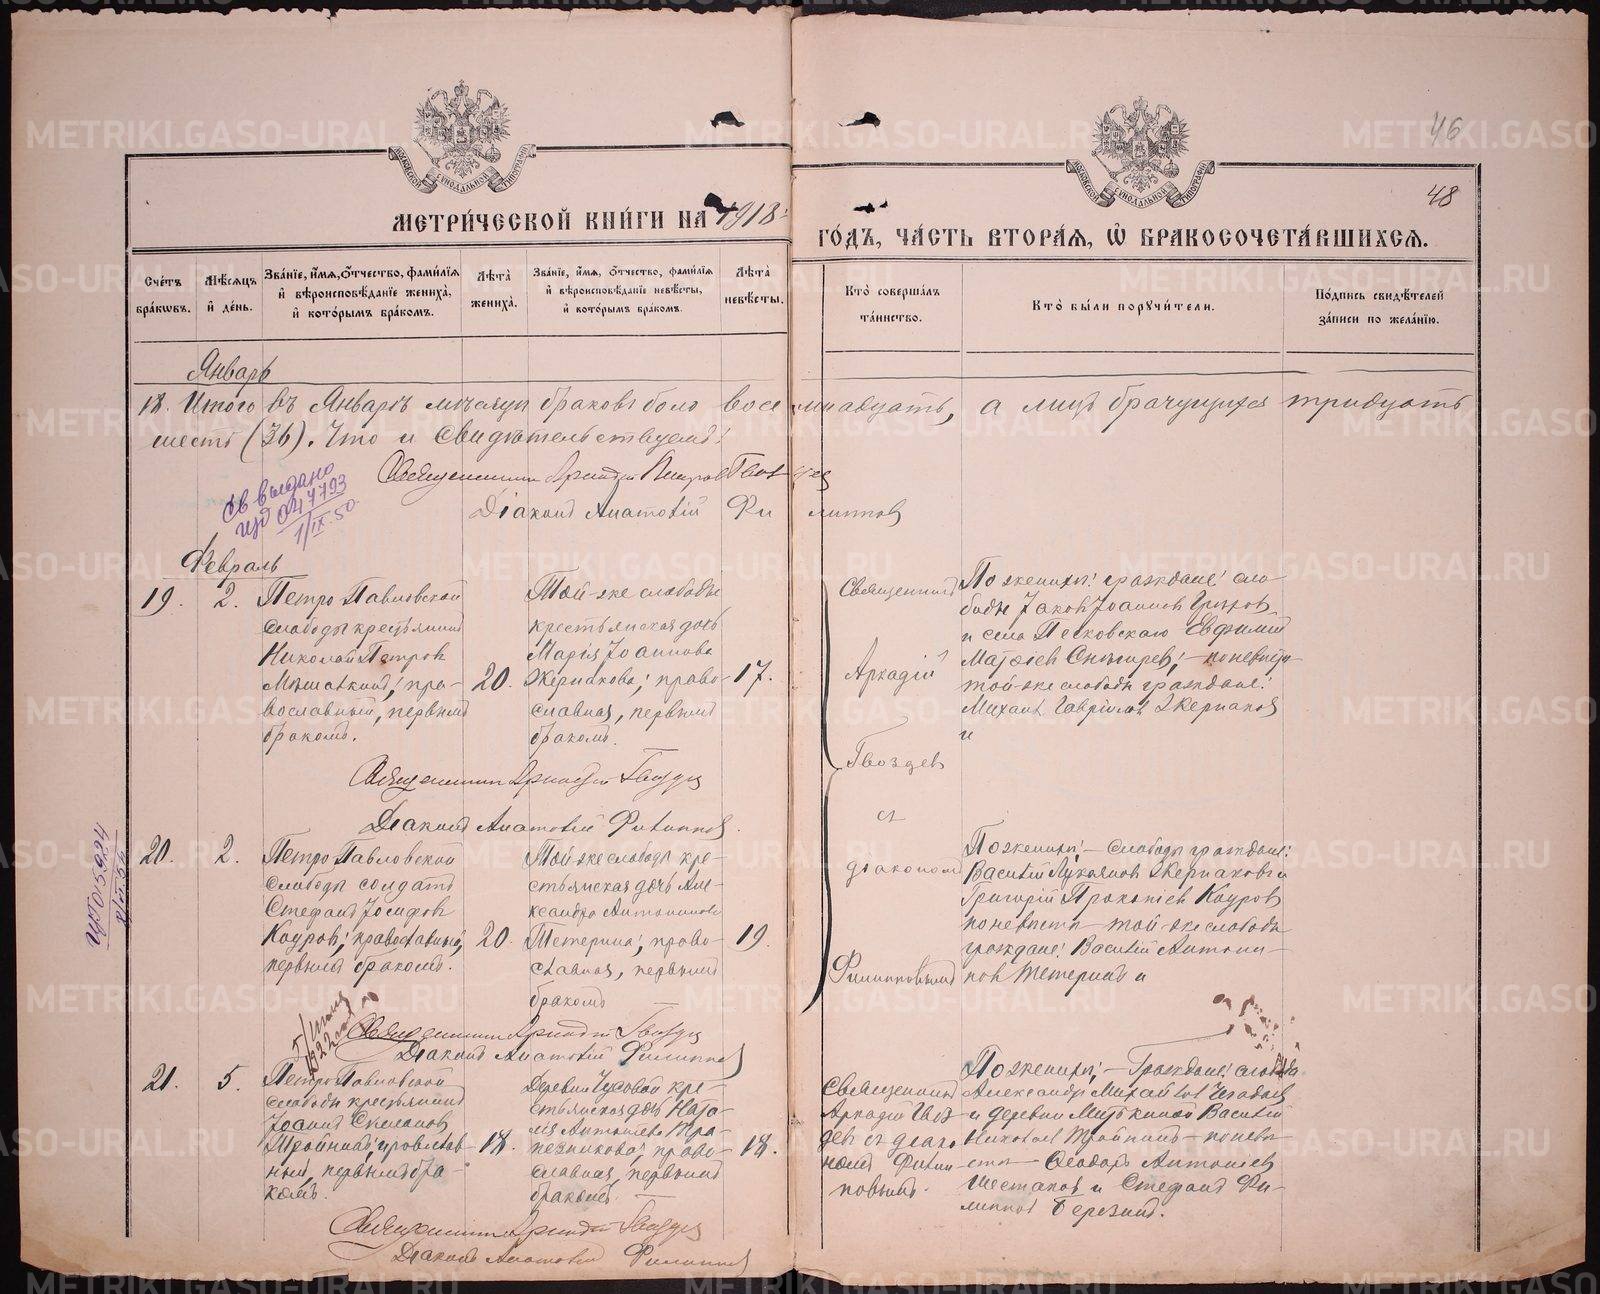 46
48
МОСКОВСКОЙ СѴНОДАЛЬНОЙ ТИПОГРАФІИ
МОСКОВСКОЙ СѴНОДАЛЬНОЙ ТИПОГРАФІИ
МЕТРИ́ЧЕСКОЙ КНИ́ГИ НА 1918 ГО́ДЪ, ЧА́СТЬ ВТОРА́Я, Ѡ҆ БРАКОСОЧЕТА́ВШИХСЯ.
Сче́тъ бра́кѡвъ.
Мѣ́сяцъ и҆ де́нь.
Зва́нїе, и҆́мя, ѻ҆́тчество, фами́лїя и҆ вѣроисповѣ́данїе жениха̀, и҆ кото́рымъ бра́комъ.
Лѣ́та̀ жениха̀.
Зва́нїе, и҆́мя, ѻ҆́тчество, фами́лїя и҆ вѣроисповѣ́данїе невѣ́сты, и҆ кото́рымъ бра́комъ.
Лѣ́та̀ невѣ́сты.
Кто̀ соверша́лъ та́инство.
Кто̀ бы́ли порꙋчи́тели.
По́дпись свидѣ́телей за́писи по жела́нїю.
Январь
18. Итого въ Январѣ мѣсяцѣ браковъ было восемнадцать, а лицъ брачущихся тридцать
шесть (36). Что и свидѣтельствуемъ:
Священникъ Аркадій Гвоздевъ
Діаконъ Анатолій Филипповъ
Св выдано
047793
1/IX.50
Февраль
19.
2.
Петро Павловской
слободы крестьянинъ
Николай Петровъ
пра-
вославный, первымъ
бракомъ.
20.
Той-же слободы
крестьянская дочь
Марія Іоаннова
Жернакова; право-
славная, первымъ
бракомъ.
17.
Священникъ
Аркадій
Гвоздевъ
съ
діакономъ
Филипповымъ
По женихѣ: граждане: сло-
боды Іаковъ Іоанновъ
и села Песковскаго Евфимій
Матѳіевъ Снигирев; — по невѣстѣ
той-же слободы граждане:
Михаилъ Гавріиловъ Жернаковъ
и
Священникъ Аркадій Гвоздевъ
Діаконъ Анатолій Филипповъ.
015924
20.
2.
Петро Павловской
слободы солдатъ
Стефанъ Іосифовъ
Кауровъ; православный,
первымъ бракомъ.
20.
Той же слободы кре-
стьянская дочь Але-
ксандра Антонинова
Тетерина; право-
славная, первымъ
бракомъ
19.
По женихѣ: — слободы граждане:
Василій Лукояновъ Жернаковъ и
Григорій Прокопіевъ Кауровъ
по невѣстѣ — той-же слободы
граждане: Василій Антони-
новъ Тетеринъ и
Священникъ Аркадій Гвоздевъ
Діаконъ Анатолій Филипповъ
21.
5.
Петро Павловской
слободы крестьянинъ
Іоаннъ
Тройнинъ; православ-
ный, первымъ бра-
комъ.
18.
Деревни Чусовой кре-
стьянская дочь Ната-
лія Антоніева Тра-
пезникова; право-
славная, первымъ
бракомъ.
18.
Священникъ
Аркадій Гвоз-
девъ съ діако-
номъ Филип-
повымъ.
По женихѣ; — Граждане: слободы
Александръ Михайловъ
и деревни Василій
Николаевъ Тройнинъ — по невѣ-
стѣ — Ѳеодоръ Антоніевъ
Шестаковъ и Стефанъ Фи-
липповъ Березинъ.
Священникъ Аркадій Гвоздевъ
Діаконъ Анатолій Филипповъ
METRIKI.GASO-URAL.RU